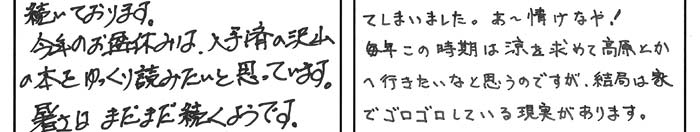 続いております。
今年のお盆休みは、入手済の沢山
の本をゆっくり読みたいと思っています。
暑さは まだまだ続くようです。
てしまいました。あ～情けなや！
毎年この時期は涼を求めて高原とか
へ行きたいなと思うのですが、結局は家
でゴロゴロしている現実があります。